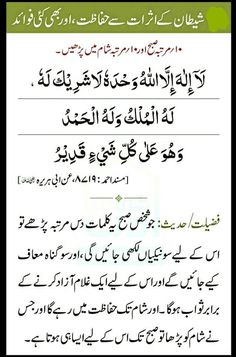 شیطان کے اثرات سے حفاظت، اور بھی کئی فوائد
۱۰/مرتبہ صبح اور ۱۰/مرتبہ شام میں پڑھیں۔
لَآ اِلٰهَ اِلَّا اللّٰهُ وَحْدَهٗ لَا شَرِيْكَ لَهٗ ،
لَهُ الْمُلْكُ وَلَهُ الْحَمْدُ
وَهُوَ عَلٰى كُلِّ شَيْءٍ قَدِيْرٌ
[مسند احمد: ۸۷۱۹، عن ابی ہریرہ]
فضیلت/حدیث: جو شخص صبح یہ کلمات دس مرتبہ پڑھے تو
اس کے لیے سو نیکیاں لکھی جائیں گی، اور سو گناہ معاف
کیے جائیں گے اور اس کے لیے ایک غلام آزاد کرنے کے
برابر ثواب ہوگا۔ اور شام تک حفاظت میں رہے گا اور جس
نے شام کو پڑھا تو صبح تک اس کے لیے ایسا ہی ہوتا ہے۔